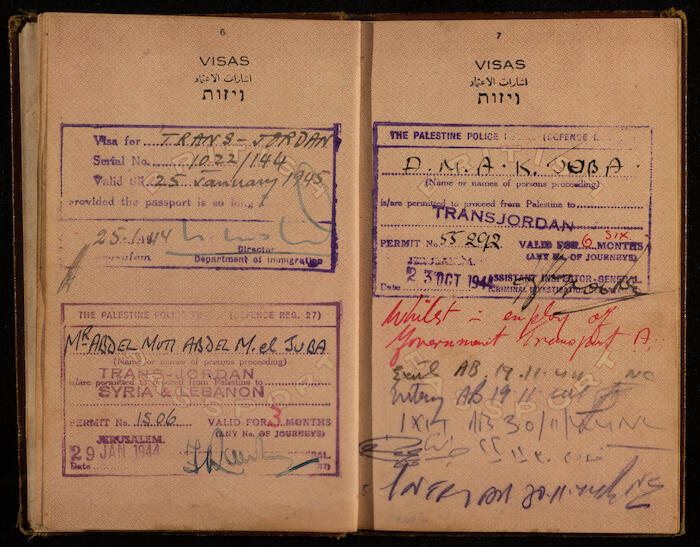 6
VISAS
اشارات الاعتماد
ויזות
Visa for TRANS-JORDAN
Serial No. 1022/144
Valid till 25 January 1945
provided the passport is so long
25-1-44
Director
Department of Immigration
THE PALESTINE POLICE (DEFENCE REG. 27)
Mr ABDEL MUTI ABDEL M. el JUBA
(Name or names of persons proceeding)
TRANS-JORDAN
is/are permitted to proceed from Palestine to
SYRIA & LEBANON
PERMIT No. 1506 VALID FOR 3 MONTHS
(ANY No. OF JOURNEYS)
JERUSALEM.
29 JAN 1944
Date
7
VISAS
اشارات الاعتماد
ויזות
THE PALESTINE POLICE (DEFENCE
D. M. A. K. JUBA.
(Name or names of persons proceeding)
is/are permitted to proceed from Palestine to
TRANSJORDAN
PERMIT No. 55292 VALID FOR 6 SIX MONTHS
(ANY No. OF JOURNEYS)
JERUSALEM.
23 OCT 1944 ASSISTANT INSPECTOR-GENERAL
Date (CRIMINAL INVESTIGATION
Whilst in employ of
Government transport A.
Exit AB. 17.11.44
Entry AB 19.11
Exit AB 30/11/